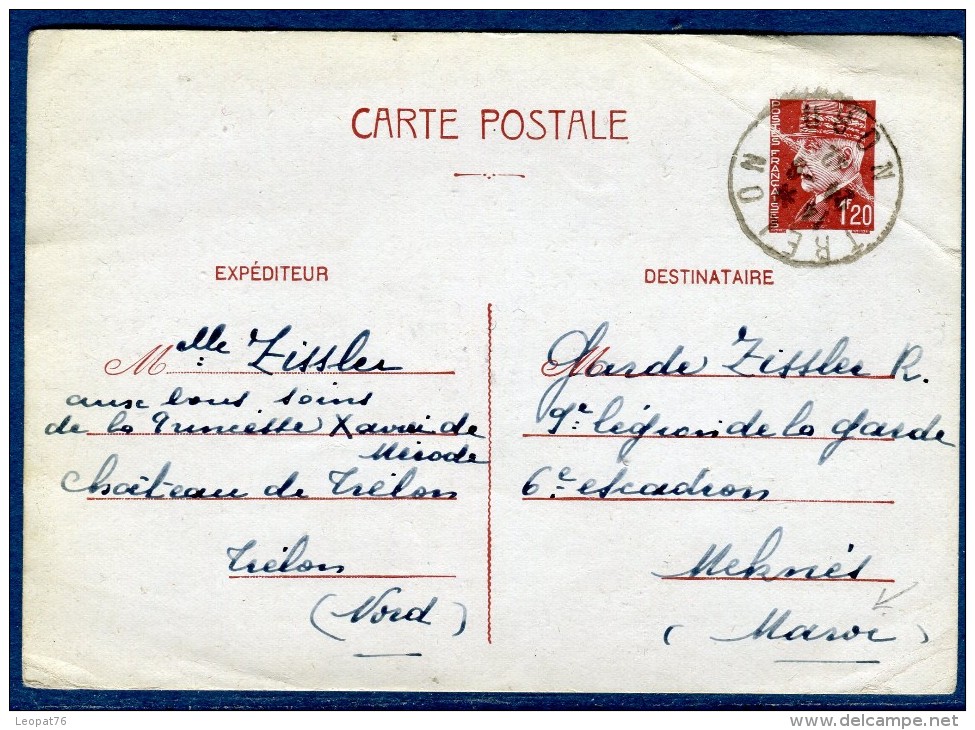 CARTE POSTALE
POSTES FRANÇAISES
1F20
TRELON
NORD
EXPÉDITEUR
Mlle Zissler
aux bons soins
de la Princesse Xavier de
Mérode
Château de Trélon
Trélon
(Nord)
DESTINATAIRE
Garde Zissler R.
9e légion de la garde
6e escadron
Meknès
(Maroc)
Leopat76
www.delcampe.net